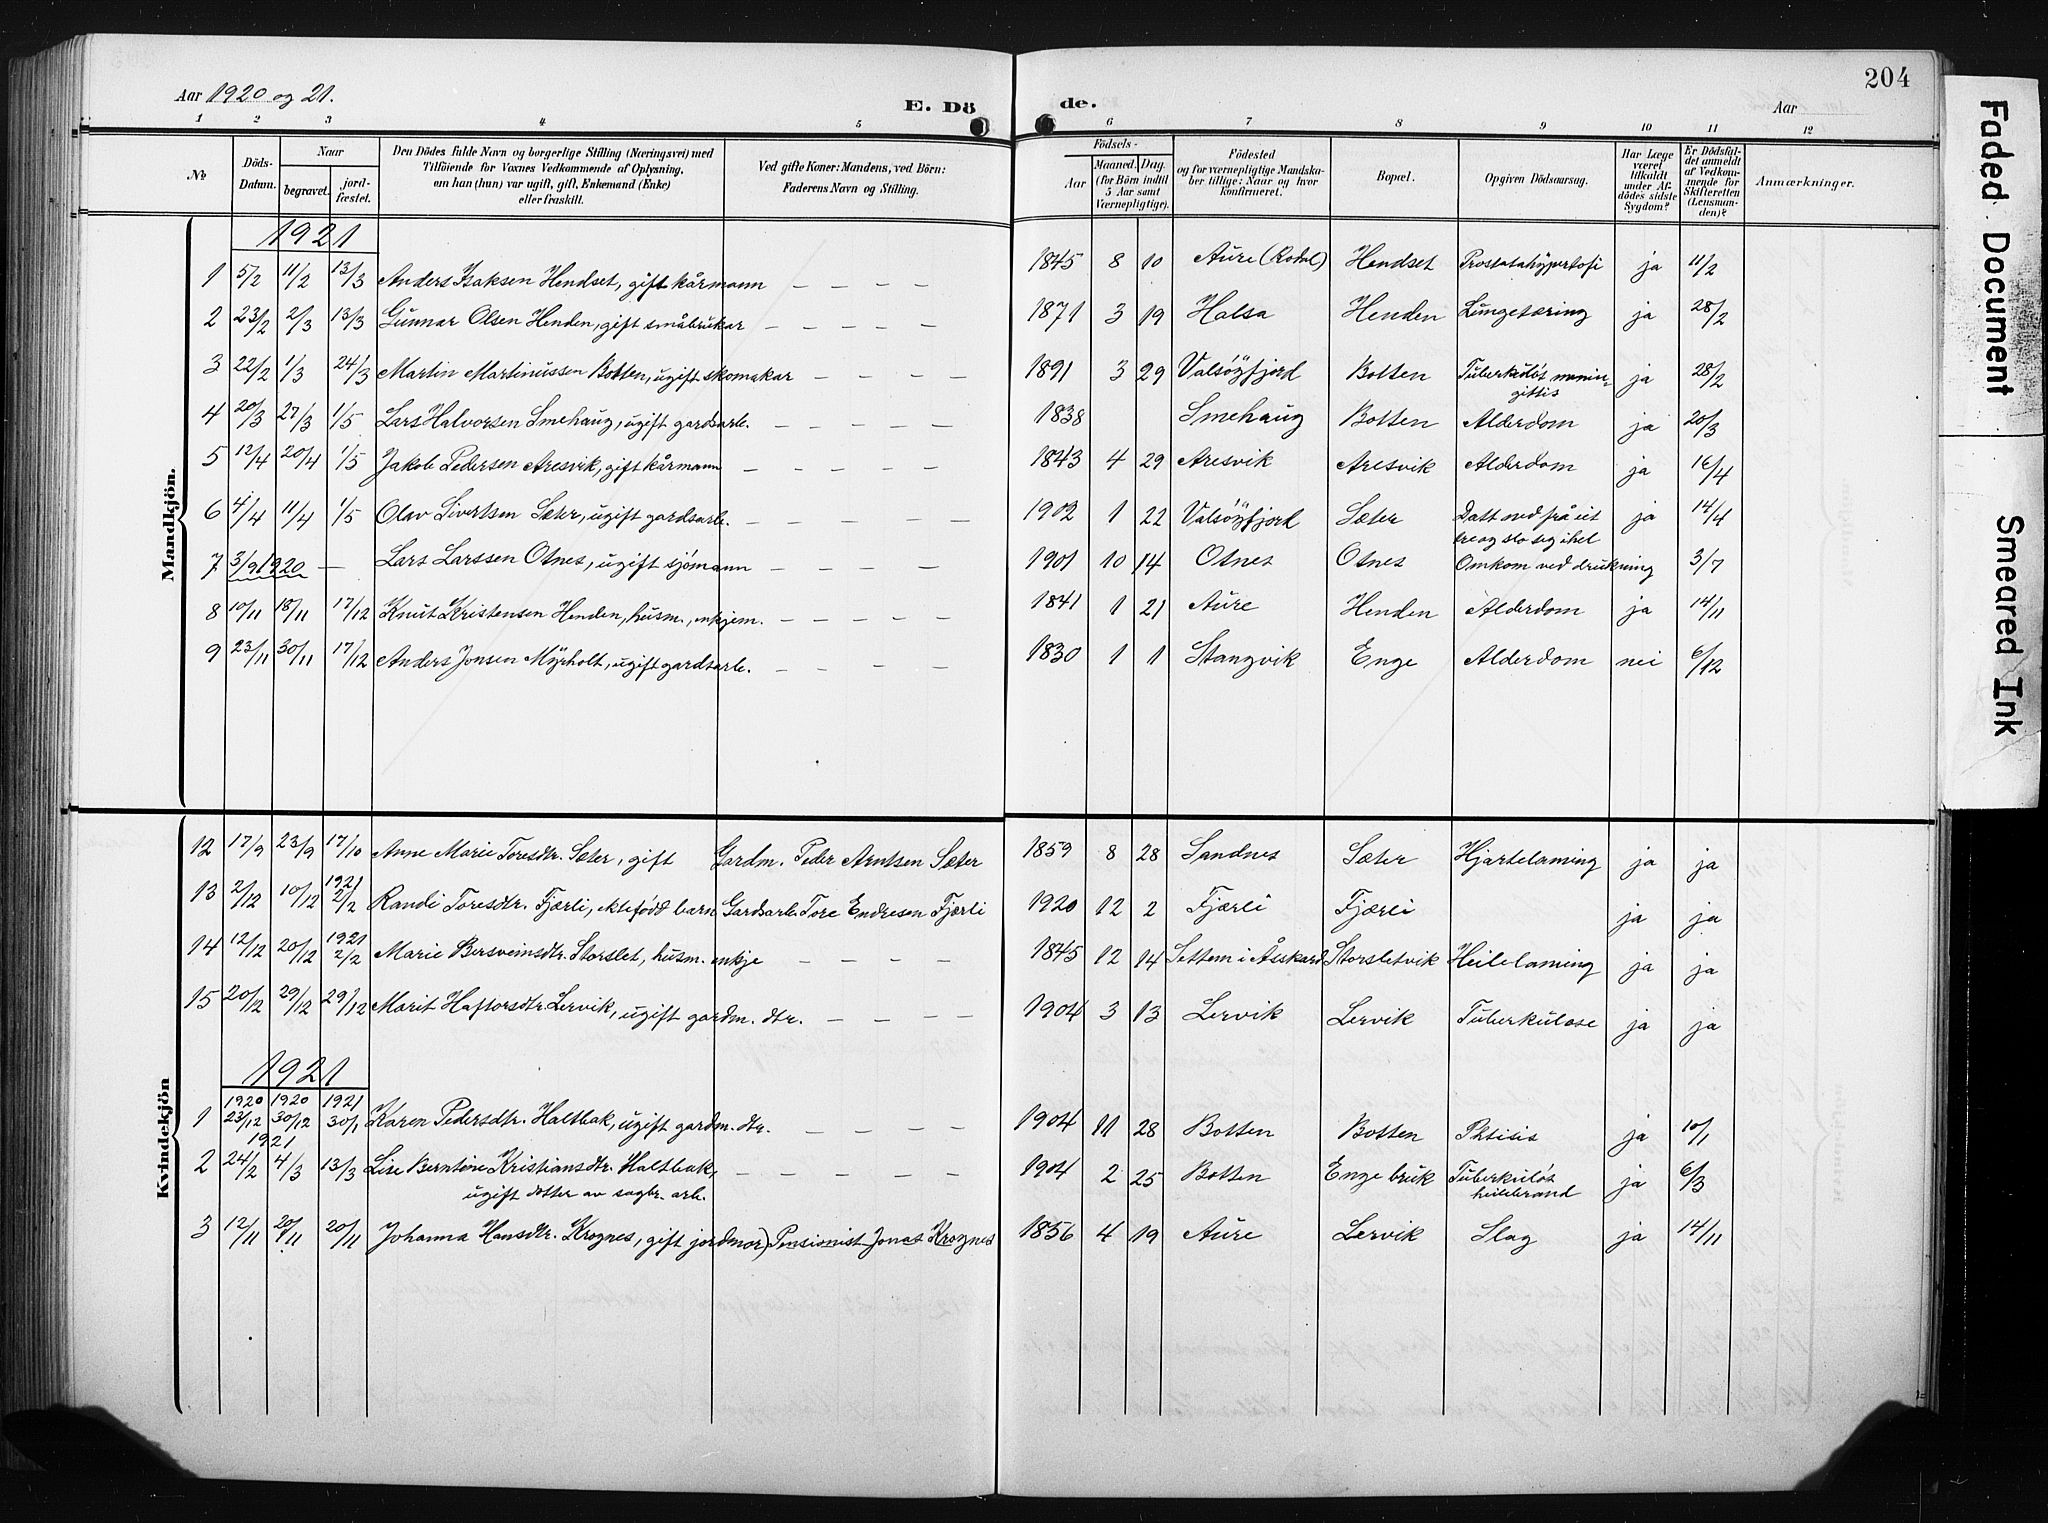 204
Aar 1920 og 21.
E. Dö de.
Aar
1 2 3 4 5 6 7 8 9 10 11 12
№
Döds-Datum.
Naar
begravet.
jord-fæstet.
Den Dödes fulde Navn og borgerlige Stilling (Næringsvei) med
Tilföiende for Voxnes Vedkommende af Oplysning,
om han (hun) var ugift, gift, Enkemand (Enke)
eller fraskilt.
Ved gifte Koner: Mandens, ved Börn:
Faderens Navn og Stilling.
Födsels-
Aar
Maaned. Dag.
(for Börn indtil
5 Aar samt
Værnepligtige).
Födested
og for værnepligtige Mandska-
ber tillige: Naar og hvor
konfirmeret.
Bopæl.
Opgiven Dödsaarsag.
Har Læge
været
tilkaldt
under Af-
dödes sidste
Sygdom?
Er Dödsfal-
det anmeldt
af Vedkom-
mende for
Skifteretten
(Lensman-
den)?
Anmærkninger.
Mandkjön.
1921
1 5/2 11/2 13/3 Anders Isaksen Hendset, gift kårmann — — — — 1845 8 10 Aure (Rodal) Hendset Prostatahypertofi ja 11/2
2 23/2 2/3 13/3 Gunnar Olsen Henden, gift småbrukar — — — — 1871 3 19 Halsa Henden Lungetæring ja 28/2
3 22/2 1/3 24/3 Martin Martinussen Botten, ugift skomakar — — — — 1891 3 29 Valsøyfjord Botten Tuberkuløs menin-
gittis ja 28/2
4 20/3 27/3 1/5 Lars Halvorsen Smehaug, ugift gardsarb. — — — — — 1838 Smehaug Botten Alderdom ja 20/3
5 12/4 20/4 1/5 Jakob Pedersen Aresvik, gift kårmann — — — — — 1843 4 29 Aresvik Aresvik Alderdom ja 16/4
6 4/4 11/4 1/5 Olav Sivertsen Sæter, ugift gardsarb. — — — — — 1902 1 22 Valsøyfjord Sæter Datt ned frå eit
tre og slo seg ihel ja 14/4
7 3/9 1920 — Lars Larssen Otnes, ugift sjömann — — — — — 1901 10 14 Otnes Otnes Omkom ved drukning 3/7
8 10/11 18/11 17/12 Knut Kristensen Henden, husm., enkjem. — — — — — 1841 1 21 Aure Henden Alderdom ja 14/11
9 23/11 30/11 17/12 Anders Jonsen Myrholt, ugift gardsarb. — — — — — 1830 1 1 Stangvik Enge Alderdom nei 6/12
Kvindekjön
12 17/9 23/9 17/10 Anne Marie Toresdtr. Sæter, gift Gardm. Peder Arntsen Sæter 1859 8 28 Sandnes Sæter Hjartelaming ja ja
13 2/12 10/12 1921 2/2 Randi Toresdtr. Fjærli, ektefödd barn Gardsarb. Tore Endresen Fjærli 1920 12 2 Fjærli Fjærli ja ja
14 12/12 20/12 1921 2/2 Marie Bersveinsdtr. Storslet, husm. enkje — — — — 1845 12 14 Settem i Åsskard Storsletvik Heilelaming ja ja
15 20/12 29/12 29/12 Marit Haftorsdtr. Lervik, ugift gardm. dtr. — — — — 1904 3 13 Lervik Lervik Tuberkulose ja ja
1921
1920 1920 1921
1 23/12 30/12 30/1 Karen Pedersdtr. Haltbak, ugift gardm. dtr. — — — — 1904 11 28 Botten Botten Phtisis ja 10/1
1921
2 24/2 4/3 13/3 Lise Berntine Kristiansdtr. Haltbak,
ugift dotter av sagbr. arb. — — — — — 1904 2 25 Botten Enge bruk Tuberkuløs
heilebrand ja 6/3
3 12/11 20/11 20/11 Johanna Hansdtr. Krognes, gift jordmor) Pensionist Jonas Krognes 1856 4 19 Aure Lervik Slag ja 14/11
Faded Document
Smeared Ink